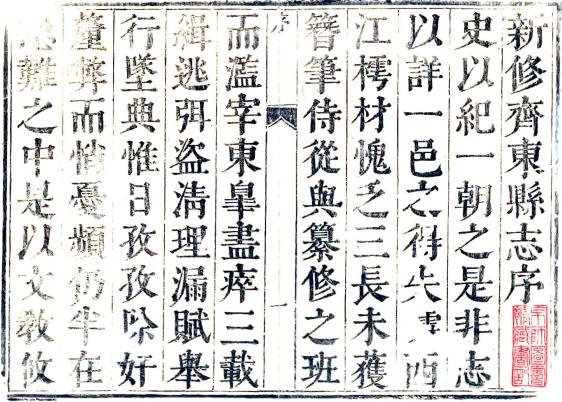 新修齊東縣志序
史以紀一朝之是非志
以詳一邑之得失西
江樗材愧乏三長未獲
簪筆侍從與纂修之班
序 一
而濫宰東臯盡瘁三載
緝逃弭盜淸理漏賦舉
行墜典惟日孜孜除奸
釐弊而悄憂頻仍半在
難之中是以文教攸
京師圖書
館藏書記